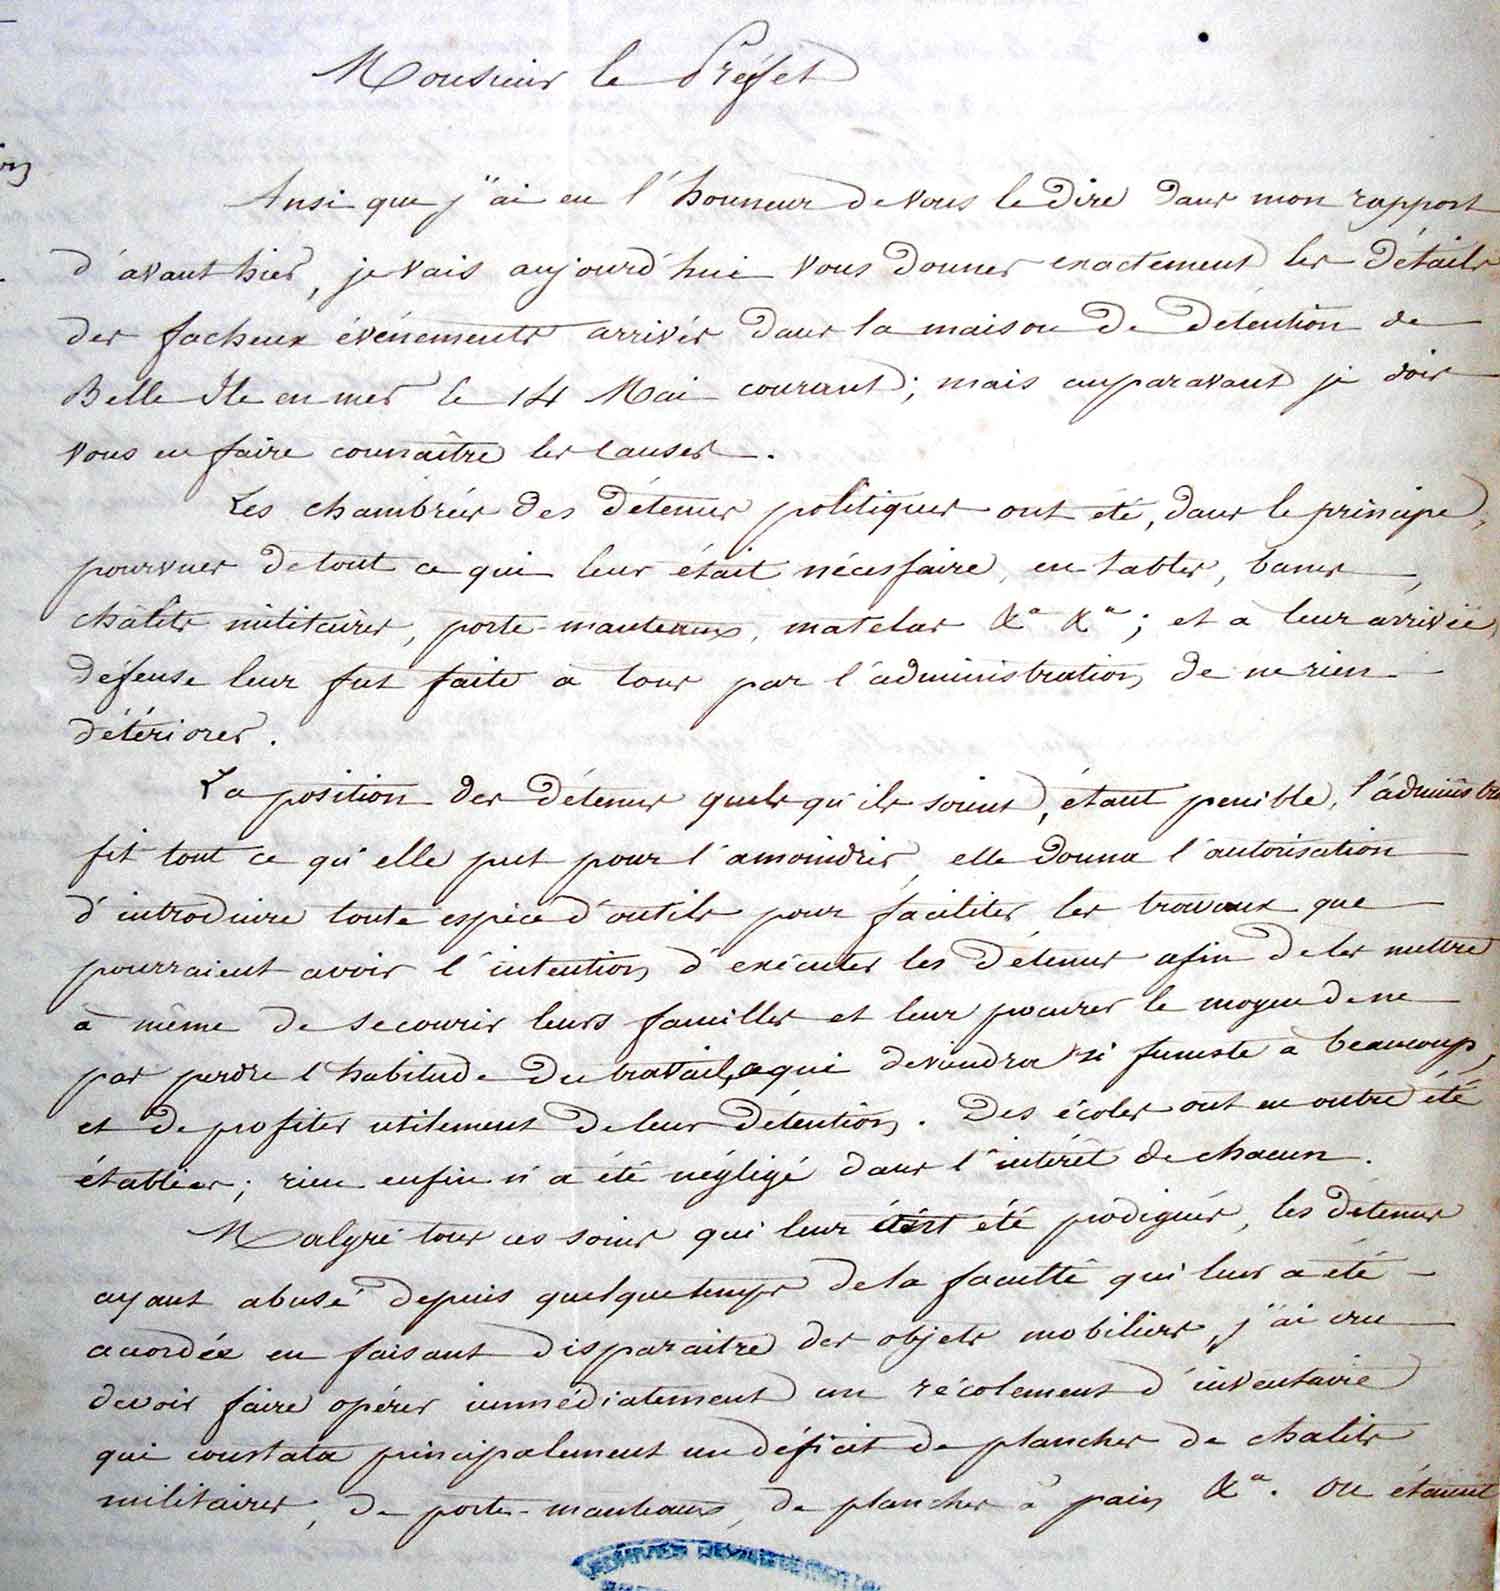 Monsieur le Préfet
Ansi que j'ai eu l'honneur de vous le dire dans mon rapport
d'avant hier, je vais aujourd'hui vous donner exactement les détails
des facheux événements arrivés dans la maison de détention de
Belle Ile en mer le 14 Mai courant ; mais auparavant je dois
vous en faire connaître les causes.
Les chambrées des détenus politiques ont été, dans le principe,
pourvues de tout ce qui leur était nécessaire, en tables, bancs,
châlits militaires, porte-manteaux, matelas &a &a ; et à leur arrivée,
défense leur fut faite à tous par l'administration, de ne rien
détériorer.
La position des détenus quels qu'ils soient, étant penible, l'administra
fit tout ce qu'elle put pour l'amoindrir, elle donna l'autorisation
d'introduire toute espèce d'outils pour faciliter les travaux que
pourraient avoir l'intention d'exécuter les détenus afin de les mettre
à même de secourir leurs familles et leur procurer le moyen de ne
pas perdre l'habitude du travail, qui deviendra si funeste à beaucoup,
et de profiter utilement de leur détention. Des écoles ont en outre été
établies ; rien enfin n'a été négligé dans l'intérêt de chacun.
Malgré tous ces soins qui leur été prodigués, les détenus
ayant abusé depuis quelque temps de la faculté qui leur a été
accordée en faisant disparaitre des objets mobiliers, j'ai cru
devoir faire opérer immédiatement un récolement d'inventaire
qui constata principalement un déficit de planches de chalits
militaires, de porte-manteaux, de planches à pain &a. Ou étaient